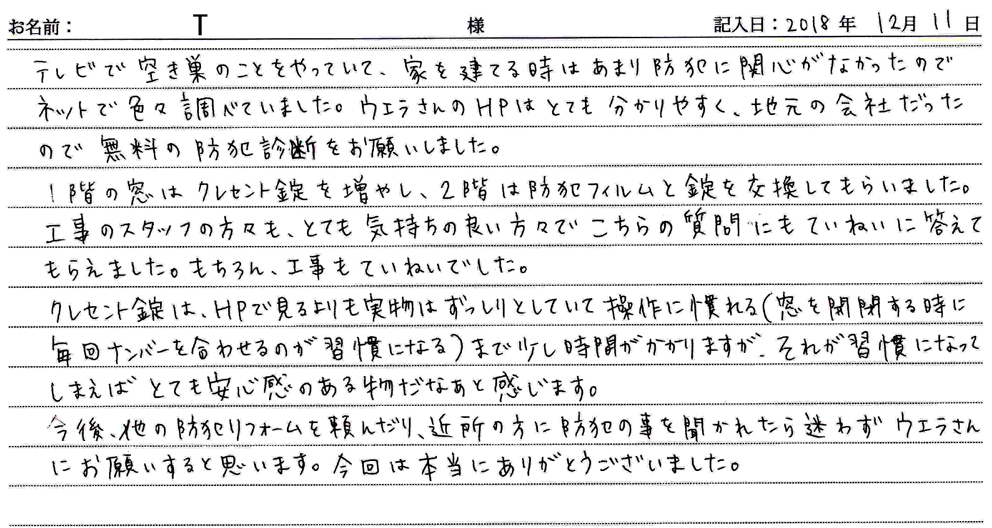 お名前： T 様 記入日：2018年 12月 11日
テレビで空き巣のことをやっていて、家を建てる時はあまり防犯に関心がなかったので
ネットで色々調べていました。ウエラさんのHPはとても分かりやすく、地元の会社だった
ので無料の防犯診断をお願いしました。
1階の窓はクレセント錠を増やし、2階は防犯フィルムと錠を交換してもらいました。
工事のスタッフの方々も、とても気持ちの良い方々でこちらの質問にもていねいに答えて
もらえました。もちろん、工事もていねいでした。
クレセント錠は、HPで見るよりも実物はずっしりとしていて操作に慣れる(窓を開閉する時に
毎回ナンバーを合わせるのが習慣になる)まで少し時間がかかりますが、それが習慣になって
しまえばとても安心感のある物だなあと感じます。
今後、他の防犯リフォームを頼んだり、近所の方に防犯の事を聞かれたら迷わずウエラさん
にお願いすると思います。今回は本当にありがとうございました。